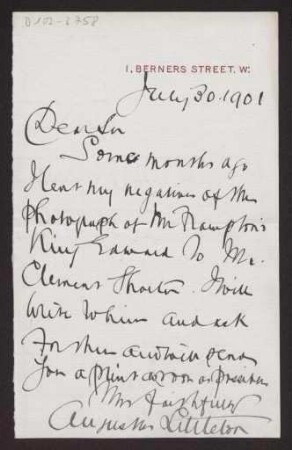 D102-3758
1, BERNERS STREET. W.
July 30. 1901
Dear Sir
Some months ago
I lent my negatives of the
photograph of Mr Frampton's
King Edward to Mr.
Clement Shorter. I will
write to him and ask
for them and will send
you a print as soon as possible
Yrs faithfully
Augustus Littleton